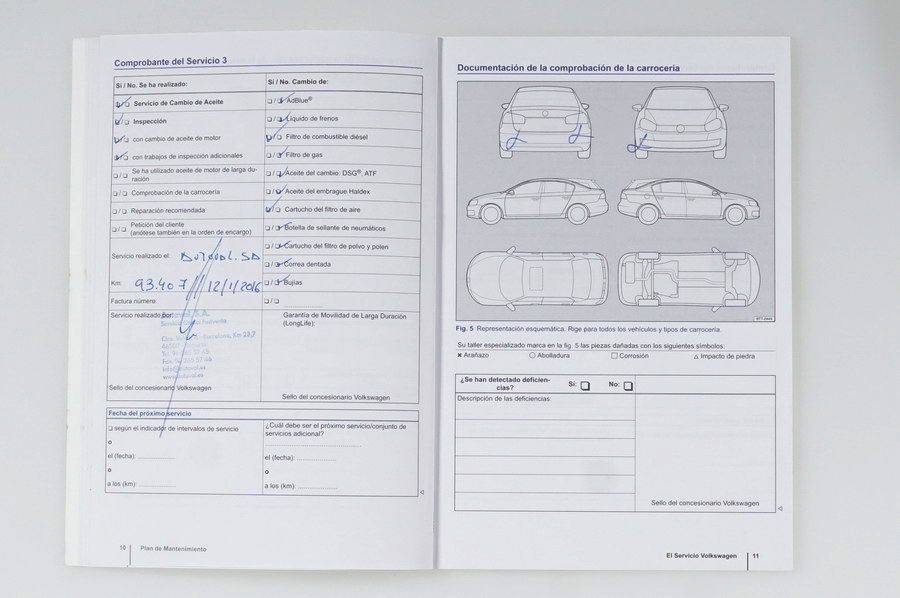 Comprobante del Servicio 3
Sí / No. Se ha realizado:
Servicio de Cambio de Aceite
Inspección
con cambio de aceite de motor
con trabajos de inspección adicionales
Se ha utilizado aceite de motor de larga du-
ración
Comprobación de la carrocería
Reparación recomendada
Petición del cliente
(anótese también en la orden de encargo)
Servicio realizado el:
Km: 93.407 12/1/2016
Factura número:
Servicio realizado por:
Sello del concesionario Volkswagen
Sí / No. Cambio de:
AdBlue®
Líquido de frenos
Filtro de combustible diésel
Filtro de gas
Aceite del cambio: DSG®, ATF
Aceite del embrague Haldex
Cartucho del filtro de aire
Botella de sellante de neumáticos
Cartucho del filtro de polvo y polen
Correa dentada
Bujías
Garantía de Movilidad de Larga Duración
(LongLife):
Sello del concesionario Volkswagen
Fecha del próximo servicio
según el indicador de intervalos de servicio
o
el (fecha):
o
a los (km):
¿Cuál debe ser el próximo servicio/conjunto de
servicios adicional?
el (fecha):
o
a los (km):
10 Plan de Mantenimiento
Documentación de la comprobación de la carrocería
Fig. 5 Representación esquemática. Rige para todos los vehículos y tipos de carrocería.
Su taller especializado marca en la fig. 5 las piezas dañadas con los siguientes símbolos:
× Arañazo ○ Abolladura □ Corrosión △ Impacto de piedra
¿Se han detectado deficien-
cias? Sí: No:
Descripción de las deficiencias:
Sello del concesionario Volkswagen
El Servicio Volkswagen 11